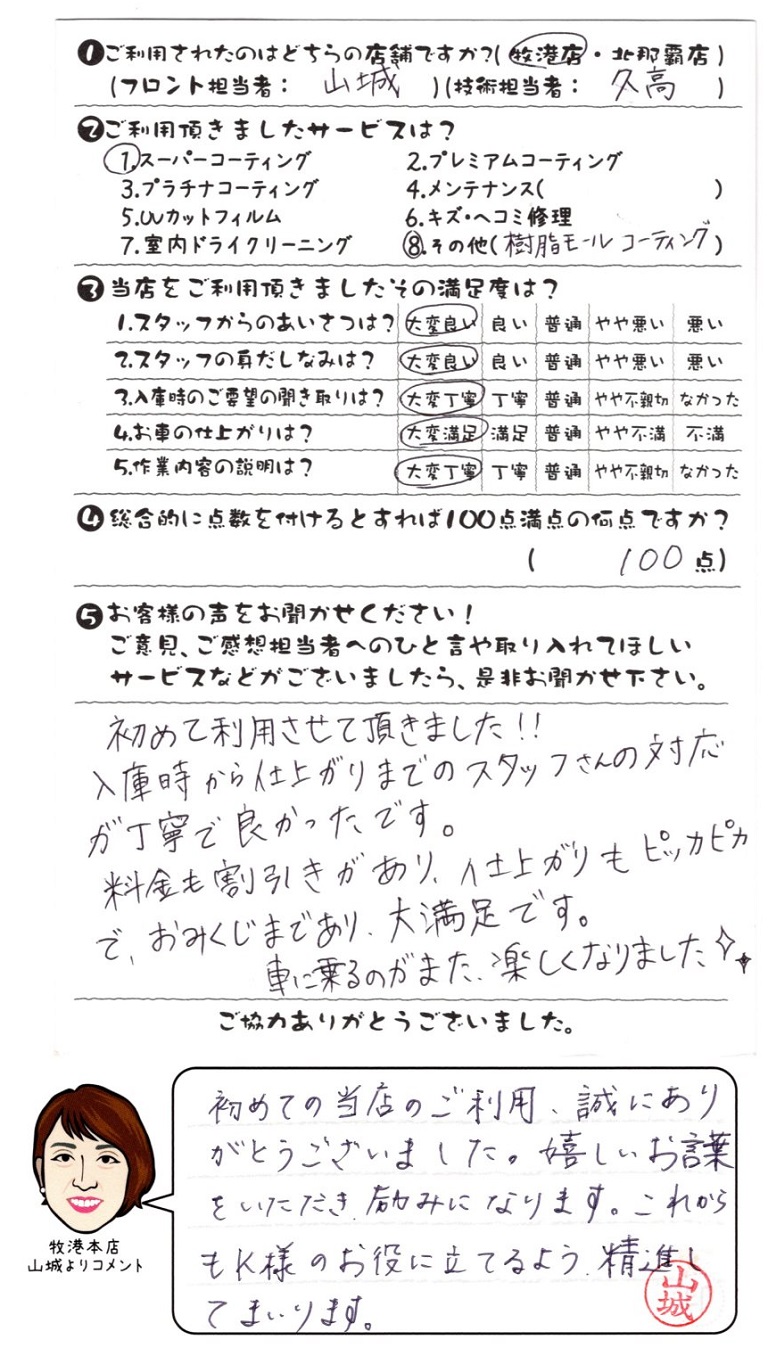 ❶ご利用されたのはどちらの店舗ですか?(牧港店・北那覇店)
(フロント担当者： 山城 )(技術担当者： 久高 )
❷ご利用頂きましたサービスは?
1.スーパーコーティング 2.プレミアムコーティング
3.プラチナコーティング 4.メンテナンス( )
5.UVカットフィルム 6.キズ・ヘコミ修理
7.室内ドライクリーニング ⑧.その他(樹脂モールコーティング)
❸当店をご利用頂きましたその満足度は?
1.スタッフからのあいさつは? 大変良い 良い 普通 やや悪い 悪い
2.スタッフの身だしなみは? 大変良い 良い 普通 やや悪い 悪い
3.入庫時のご要望の聞き取りは? 大変丁寧 丁寧 普通 やや不親切 なかった
4.お車の仕上がりは? 大変満足 満足 普通 やや不満 不満
5.作業内容の説明は? 大変丁寧 丁寧 普通 やや不親切 なかった
❹総合的に点数を付けるとすれば100点満点の何点ですか?
( 100点)
❺お客様の声をお聞かせください!
ご意見、ご感想担当者へのひと言や取り入れてほしい
サービスなどがございましたら、是非お聞かせ下さい。
初めて利用させて頂きました!!
入庫時から仕上がりまでのスタッフさんの対応
が丁寧で良かったです。
料金も割引きがあり、仕上がりもピッカピカ
で、おみくじまであり、大満足です。
車に乗るのがまた、楽しくなりました
ご協力ありがとうございました。
初めての当店のご利用、誠にあり
がとうございました。嬉しいお言葉
をいただき、励みになります。これから
もK様のお役に立てるよう、精進し
てまいります。
山城
牧港本店
山城よりコメント